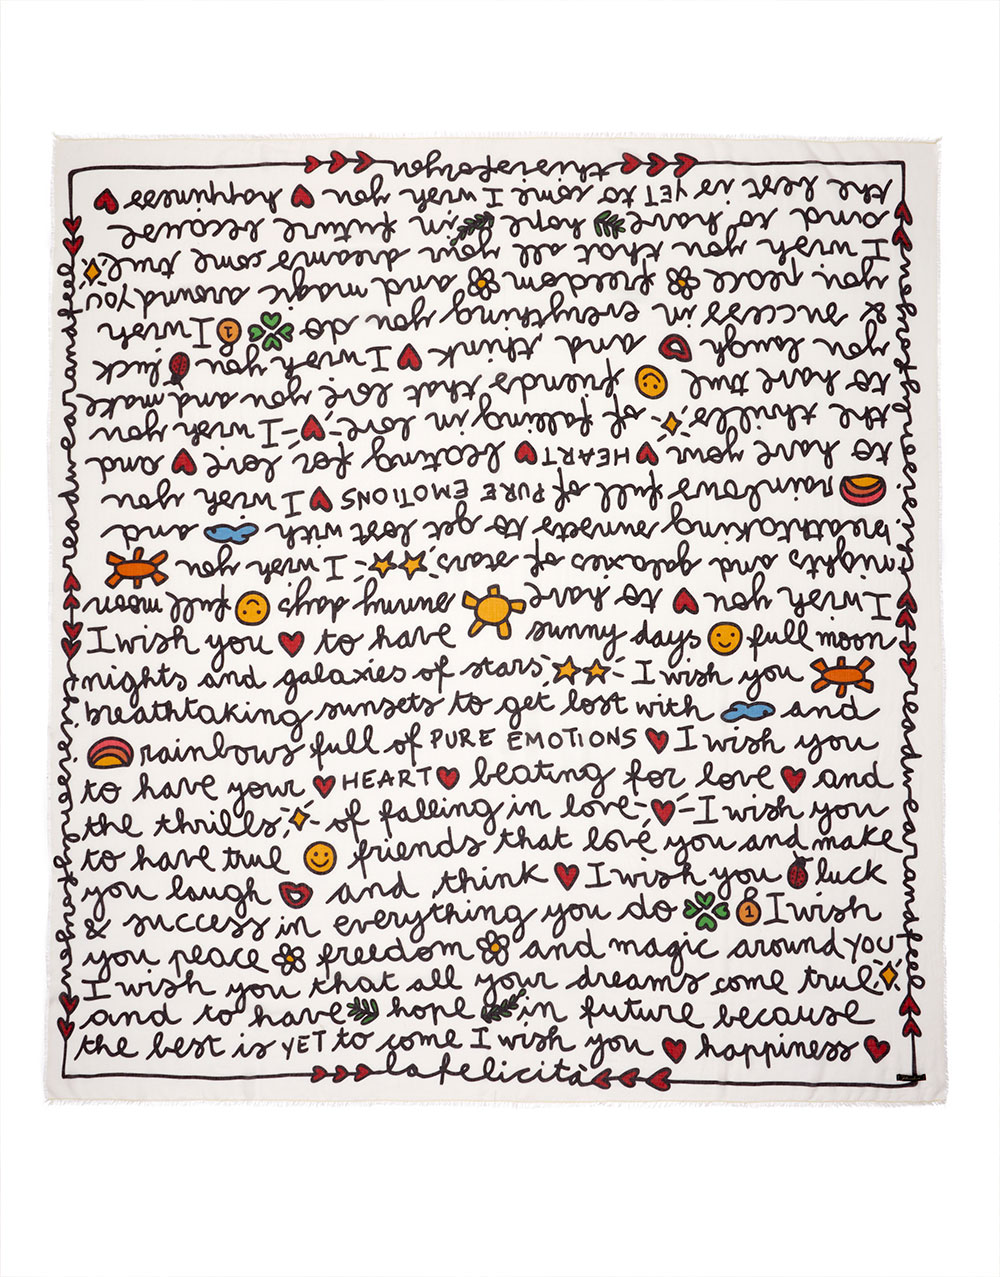 I wish you to have sunny days full moon
nights and galaxies of stars I wish you
breathtaking sunsets to get lost with and
rainbows full of PURE EMOTIONS I wish you
to have your HEART beating for love and
the thrills of falling in love I wish you
to have true friends that love you and make
you laugh and think I wish you luck
& success in everything you do 1 I wish
you peace freedom and magic around YOU
I wish you that all your dreams come true
and to have hope in future because
the best is YET to come I wish you happiness
la felicità
I wish you to have sunny days full moon
nights and galaxies of stars I wish you
breathtaking sunsets to get lost with and
rainbows full of PURE EMOTIONS I wish you
to have your HEART beating for love and
the thrills of falling in love I wish you
to have true friends that love you and make
you laugh and think I wish you luck
& success in everything you do 1 I wish
you peace freedom and magic around YOU
I wish you that all your dreams come true
and to have hope in future because
the best is YET to come I wish you happiness
this is for you